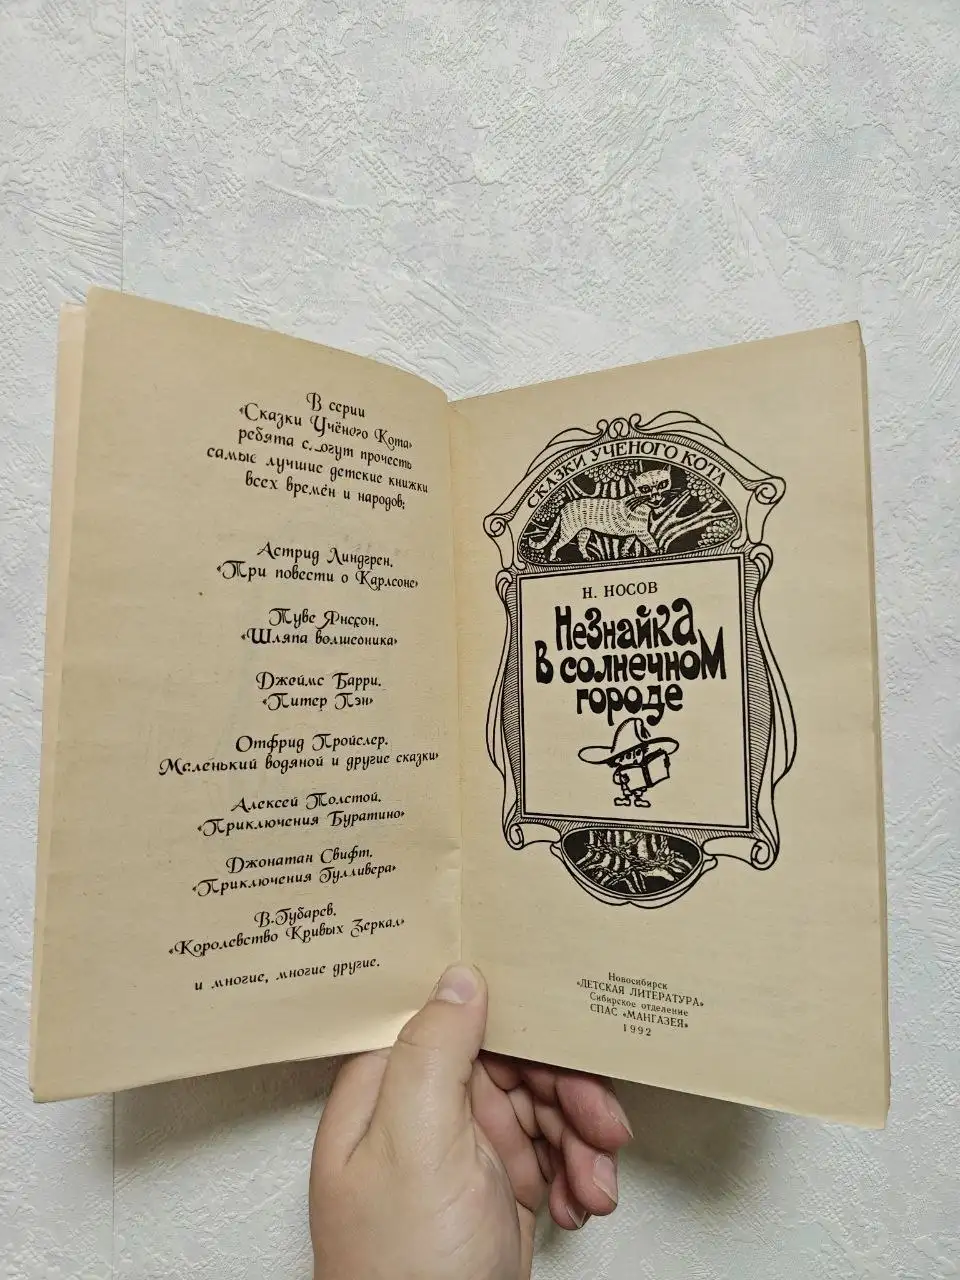 В серии
«Сказки Учёного Кота»
ребята смогут прочесть
самые лучшие детские книжки
всех времён и народов:
Астрид Линдгрен.
«Три повести о Карлсоне»
Туве Янссон.
«Шляпа волшебника»
Джеймс Барри.
«Питер Пэн»
Отфрид Пройслер.
Маленький водяной и другие сказки»
Алексей Толстой.
«Приключения Буратино»
Джонатан Свифт.
«Приключения Гулливера»
В. Губарев.
«Королевство Кривых Зеркал»
и многие, многие другие.
СКАЗКИ УЧЕНОГО КОТА
Н. НОСОВ
Незнайка
в солнечном
городе
Новосибирск
«ДЕТСКАЯ ЛИТЕРАТУРА»
Сибирское отделение
СПАС «МАНГАЗЕЯ»
1992